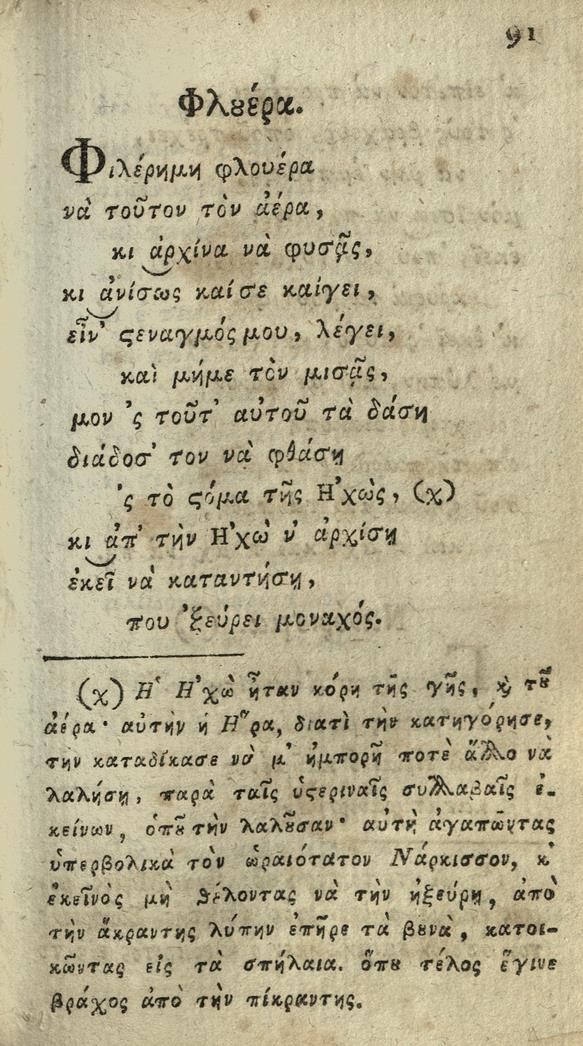 91
Φλȣέρα.
Φιλέρημη φλουέρα
νὰ τοῦτον τὸν ἀέρα,
κι ἀρχίνα νὰ φυσᾷς,
κι ἀνίσως καί σε καίγει,
εἶν' ϛεναγμός μου, λέγει,
καὶ μήμε τὸν μισᾷς,
μον 'ς τοῦτ' αὐτοῦ τὰ δάση
διάδοσ' τον νὰ φθάσῃ
'ς τὸ ϛόμα τῆς Η'χῶς, (χ)
κι ἀπ' τὴν Η'χὼ ν' ἀρχίσῃ
ἐκεῖ νὰ καταντήσῃ,
που 'ξεύρει μοναχός.
(χ) Η' Η'χὼ ἦταν κόρη τῆς γῆς, ϗ τȣ͂
ἀέρα· αὐτὴν ἡ Η῞ρα, διατὶ τὴν κατηγόρησε,
τὴν καταδίκασε νὰ μ' ἠμπορῇ ποτὲ ἄλλο νὰ
λαλήσῃ, παρὰ ταῖς ὑϛεριναῖς συλλαβαῖς ἐ-
κείνων, ὁπȣ͂ τὴν λαλȣ͂σαν· αὐτὴ ἀγαπῶντας
ὑπερβολικὰ τὸν ὡραιότατον Νάρκισσον, κ'
ἐκεῖνὸς μὴ θέλοντας νὰ τὴν ἠξεύρῃ, ἀπὸ
τὴν ἄκραντης λύπην ἐπῆρε τὰ βȣνὰ, κατοι-
κῶντας εἰς τὰ σπήλαια. ὅπȣ τέλος ἔγινε
βράχος ἀπὸ τὴν πίκραντης.